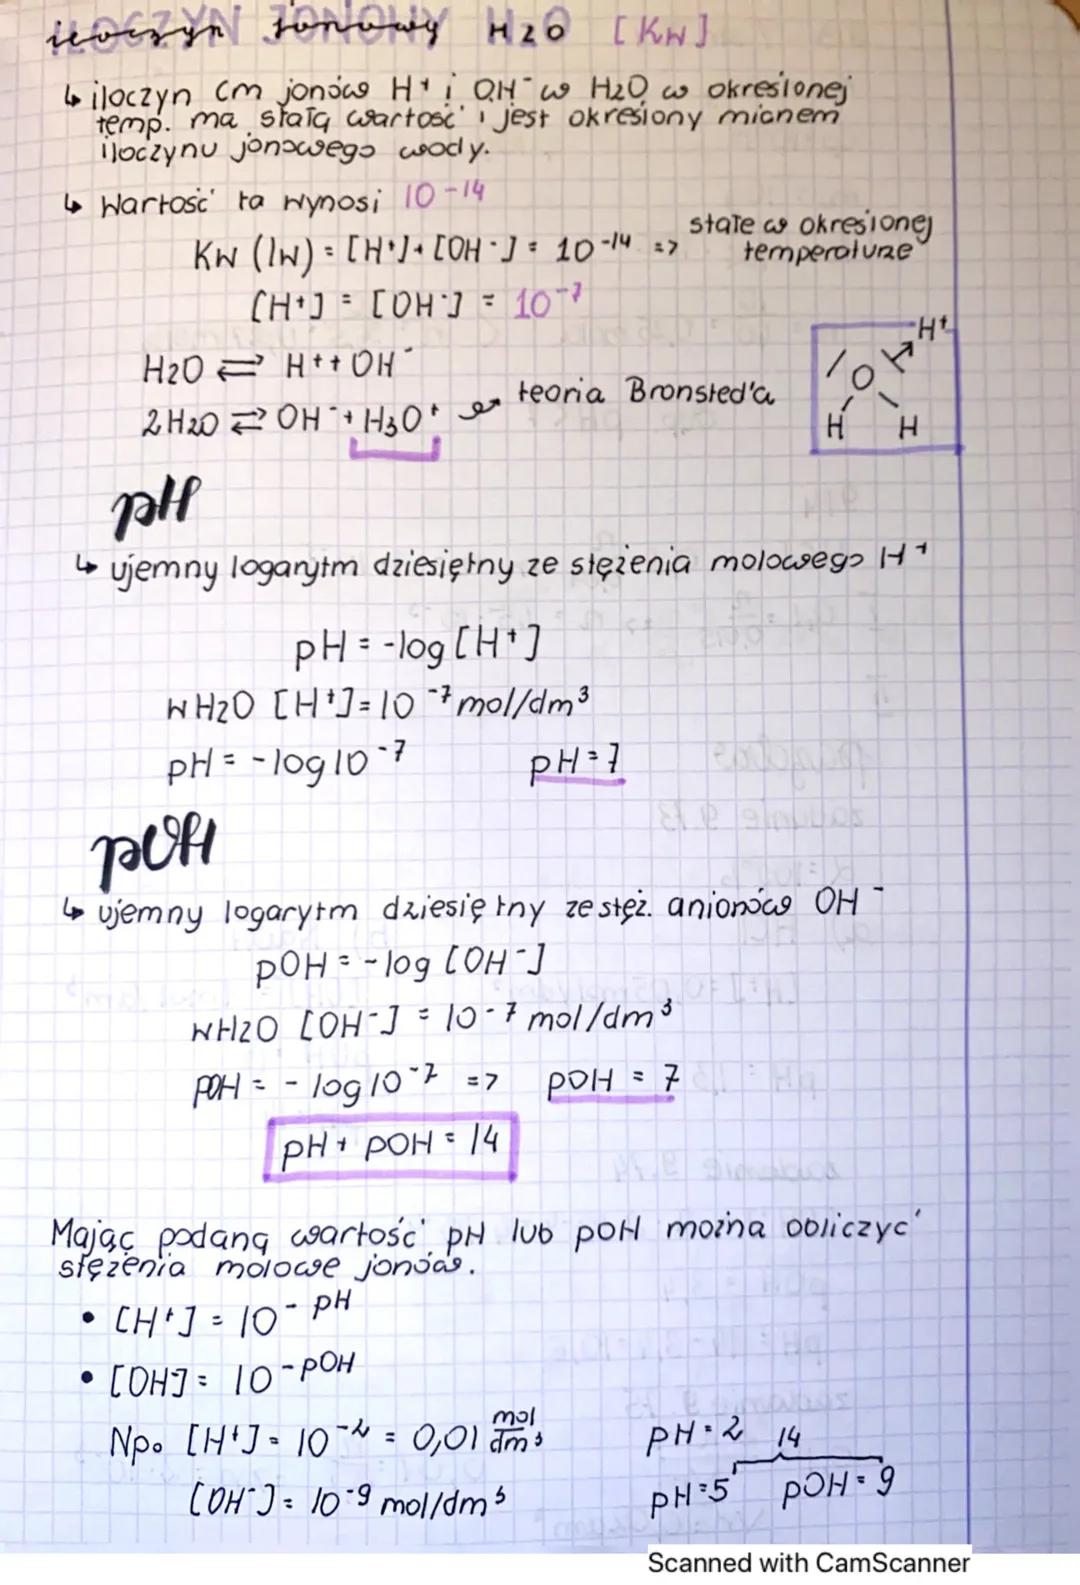 ILOCZYN JONOWY H2O [KW]
↳ iloczyn cm jonów H+ i OH- w H2O w określonej
temp. ma stałą wartość i jest określony mianem
iloczynu jonowego wody.
↳ Wartość ta wynosi 10-14
KW (IW) = [H+]+[OH-] = 10-14 => stałe w określonej
temperaturze
[H+] = [OH-] = 10-7
H+
H2O ⇄ H++OH-
O
2H2O ⇄ OH-+H3O+ teoria Bronsted'a
H H
pH
↳ ujemny logarytm dziesiętny ze stężenia molowego H+
pH = -log [H+]
W H2O [H+]=10-7 mol/dm3
pH = -log10-7 pH=7
pOH
↳ ujemny logarytm dziesiętny ze stęż. anionów OH-
pOH = -log [OH-]
WH2O [OH-] = 10-7 mol/dm3
pOH = - log10-7 => pOH = 7
pH + pOH = 14
Mając podaną wartość pH lub pOH można obliczyć
stężenia molowe jonów.
• [H+] = 10-pH
• [OH-] = 10-pOH
Np. [H+] = 10-2 = 0,01 mol/dm3 pH=2 14
[OH-] = 10-9 mol/dm3 pH=5 pOH=9
Scanned with CamScanner